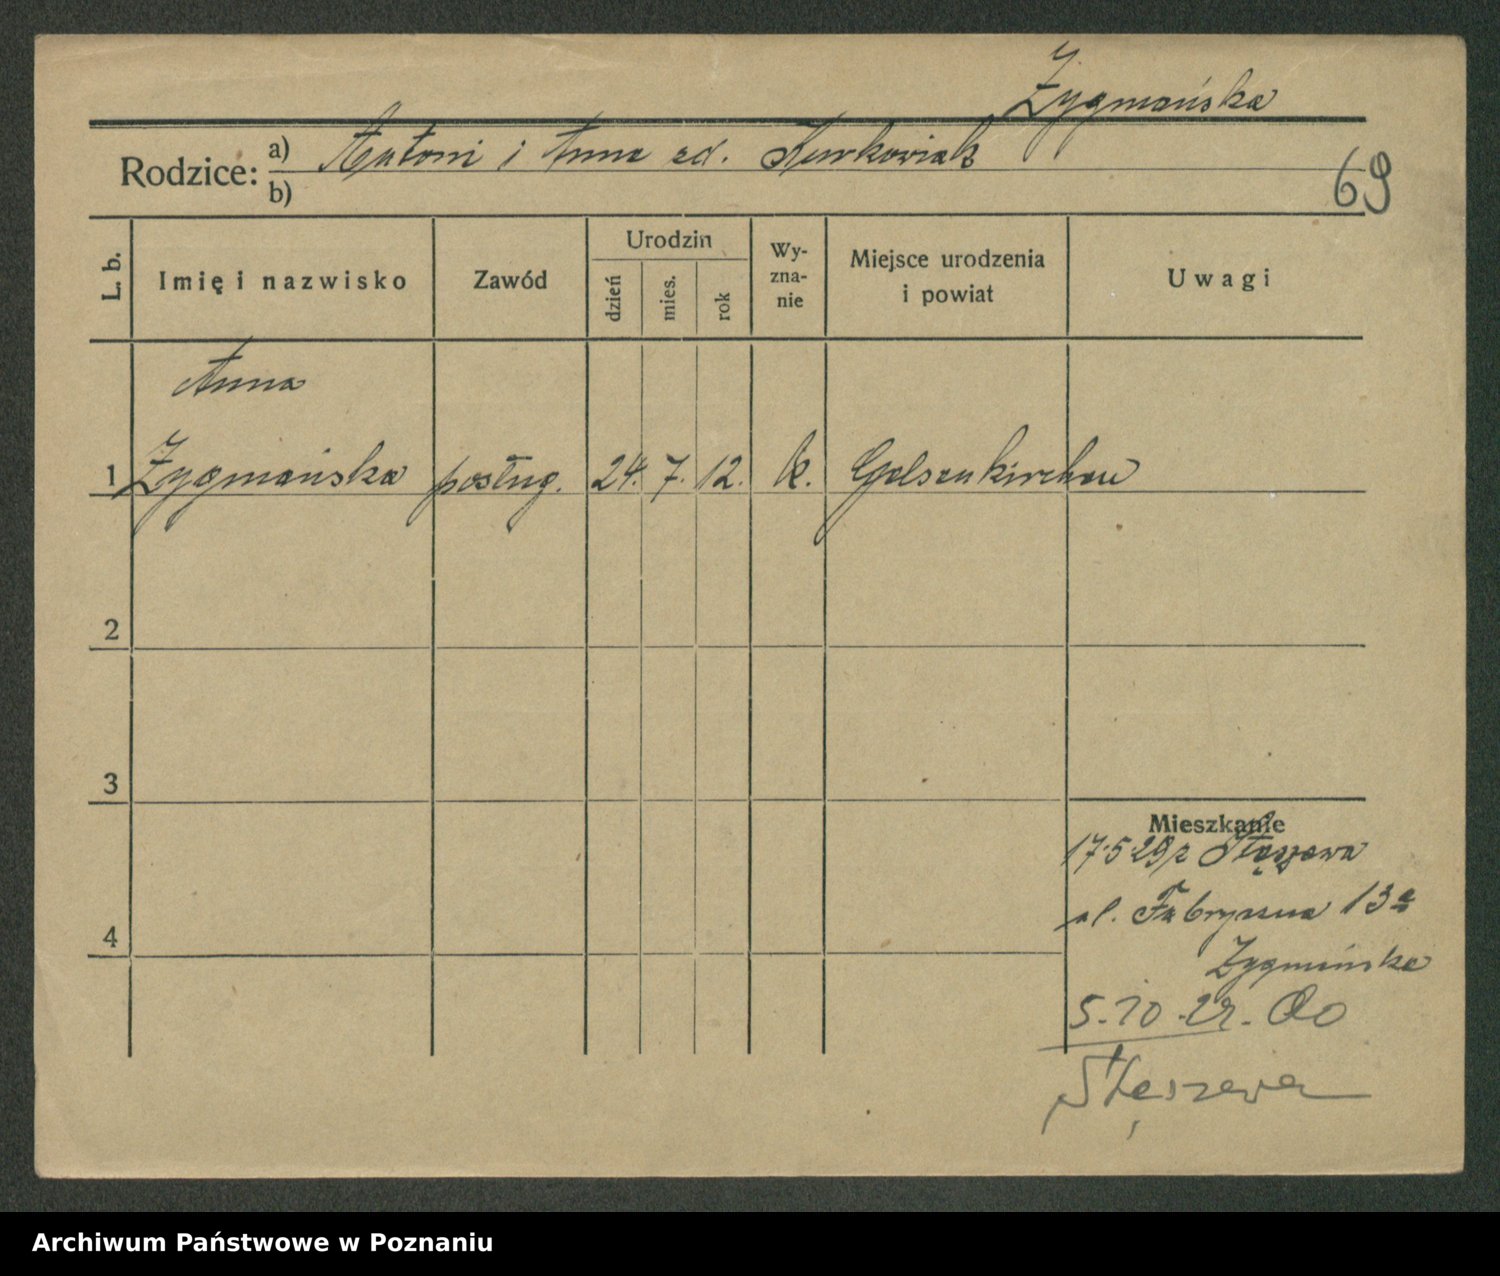 Zygmańska
Rodzice: a) Antoni i Anna zd. Kurkowiak
b)
69
L. b. Imię i nazwisko Zawód Urodzin dzień mies. rok Wyznanie Miejsce urodzenia i powiat Uwagi
Anna
1 Zygmańska posług. 24. 7. 12. k. Gelsenkirchen
2
3
Mieszkanie
17.5.29 z Stęszewa
ul. Fabryczna 13a
4
Zygmańska
5.10.29. do
Stęszewa
Archiwum Państwowe w Poznaniu